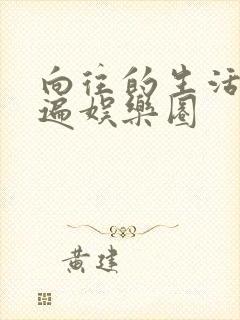 向往的生活
遍娱樂圈
黄建